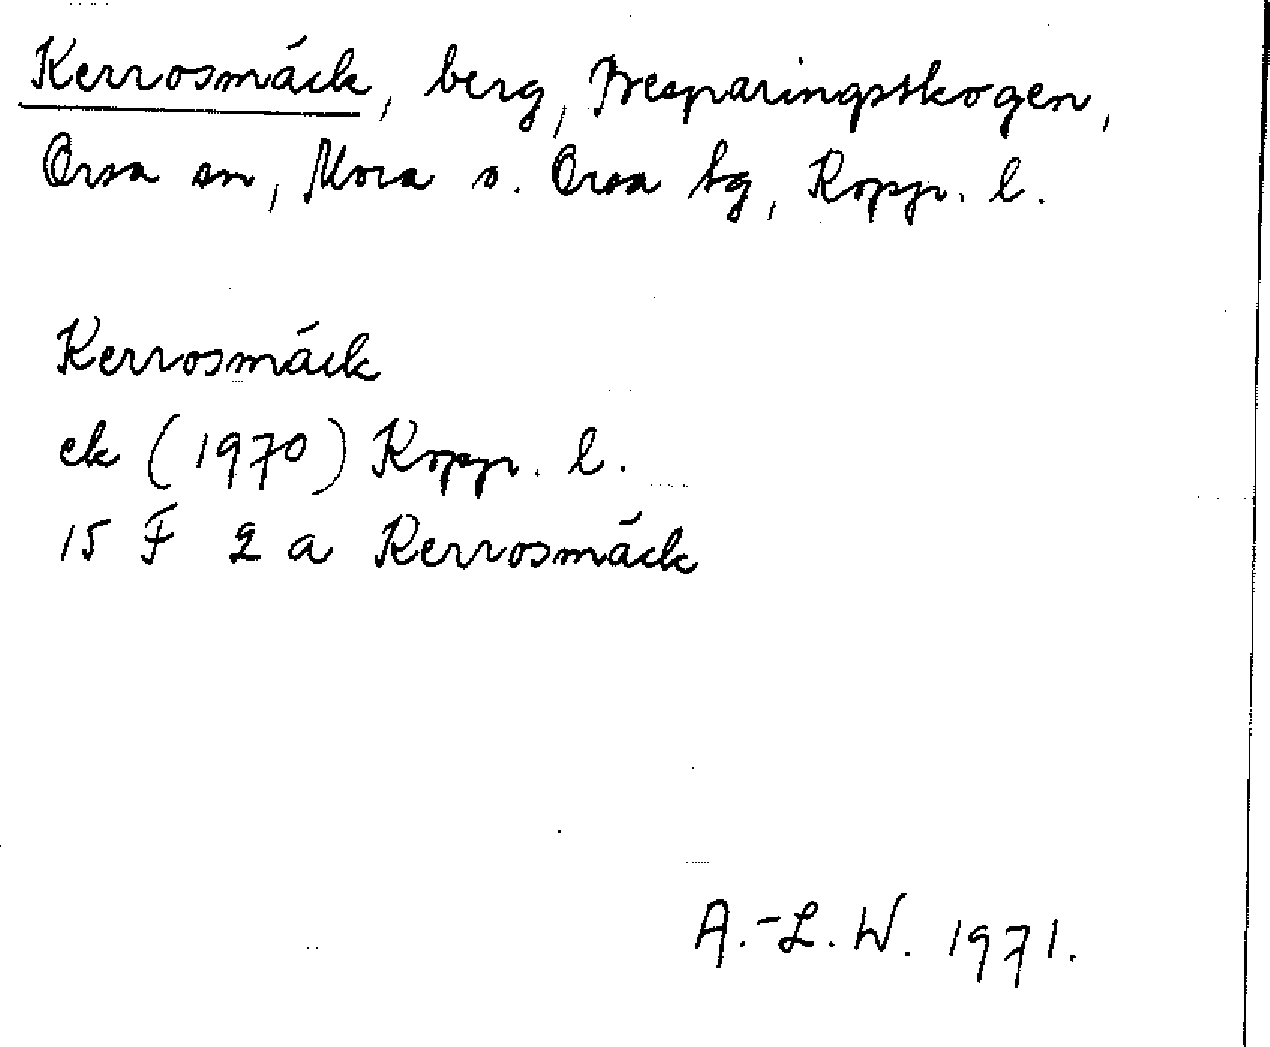 Kerrosmáck, berg, Besparingsskogen,
Orsa sn, Mora o. Orsa tg, Kopp. l.
Kerrosmáck
ek (1970) Kopp. l.
15 F 2 a Kerrosmáck
A.-L. W. 1971.